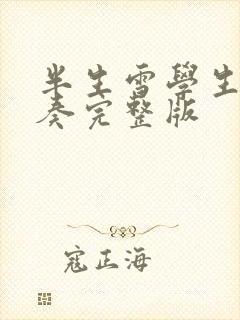 半生雪學生
奏完整版
寇正海